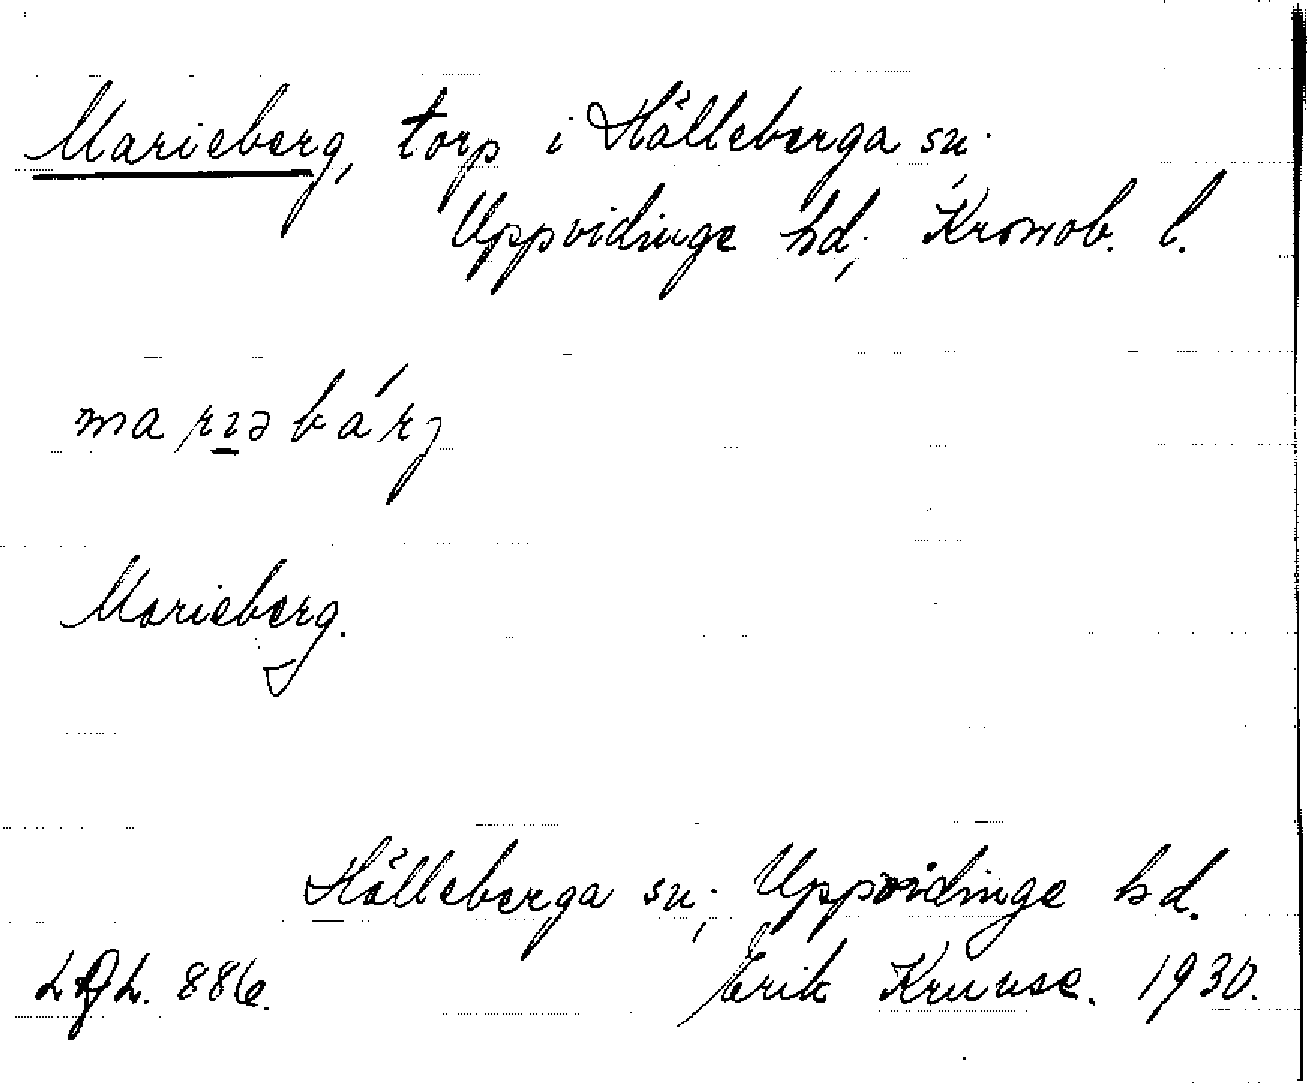 Marieberg, torp i Hälleberga sn.
Uppvidinge hd; Kronob. l.
marıəbárj
Marieberg.
Hälleberga sn; Uppvidinge hd.
886. Erik Kruuse. 1930.